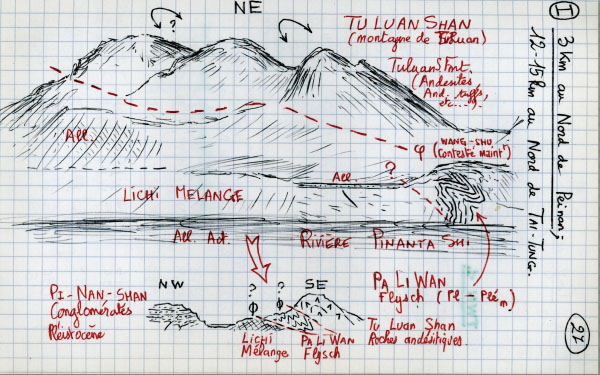 I
3 km au Nord de Peinan;
12-15 km au Nord de TAI-TUNG.
NE
?
TU LUAN SHAN
(montagne de Tuluan)
Tuluan Fmt.
(Andésites,
And. tuffs,
etc...)
All.
φ
WANG-SHU
(Contesté maintt)
?
All.
LICHI MELANGE
All. Act.
RIVIÈRE PINANTA SHI
PA LI WAN
Flysch (Pl - Plém)
NW
SE
? ?
PI-NAN-SHAN
Conglomérats
Pléistocène
Lichi
Mélange
PA LI WAN
Flysch
Tu Luan Shan
Roches andésitiques.
27